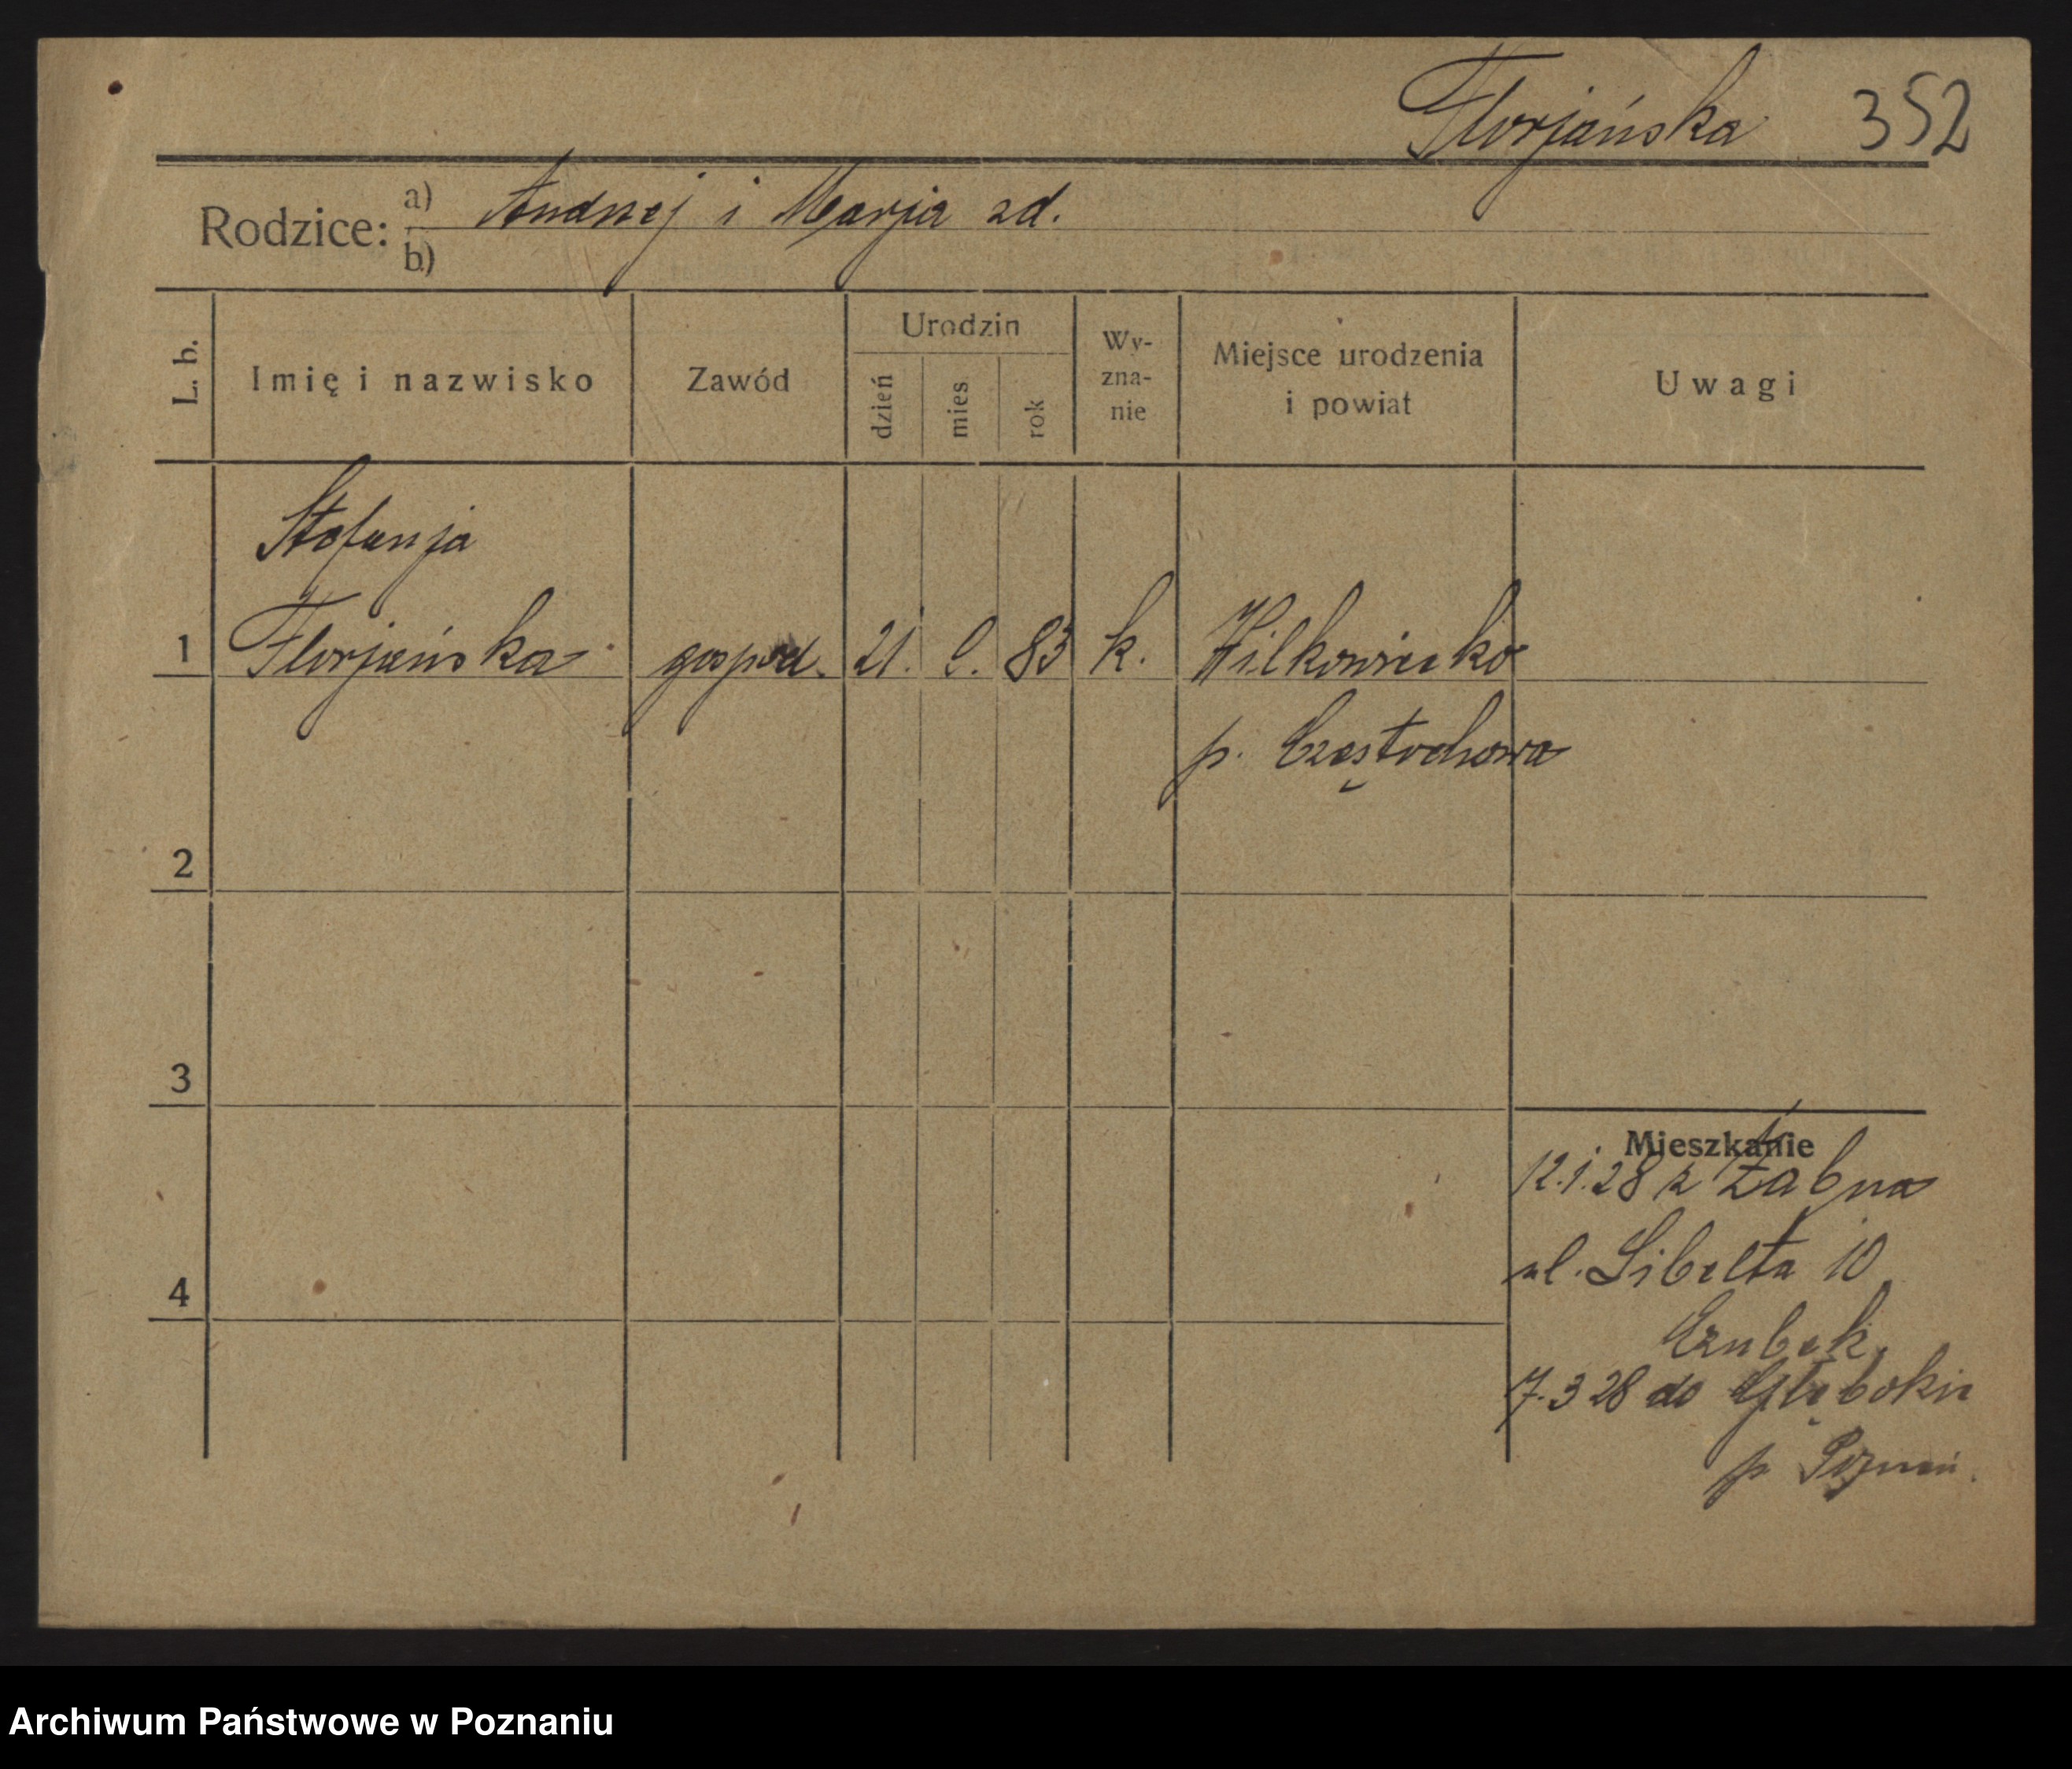 Florjańska 352
Rodzice: a) Andrzej i Marja zd.
b)
L. b. Imię i nazwisko Zawód Urodzin dzień mies. rok Wy-zna-nie Miejsce urodzenia i powiat Uwagi
Stefanja
1 Florjańska gospod. 21. 9. 83 k. Wilkowiecko
p. Częstochowa
2
3
Mieszkanie
12.1.28 z Żabna
ul. Libelta 10
4
7.3 28 do Głębokie
p. Poznań.
Archiwum Państwowe w Poznaniu